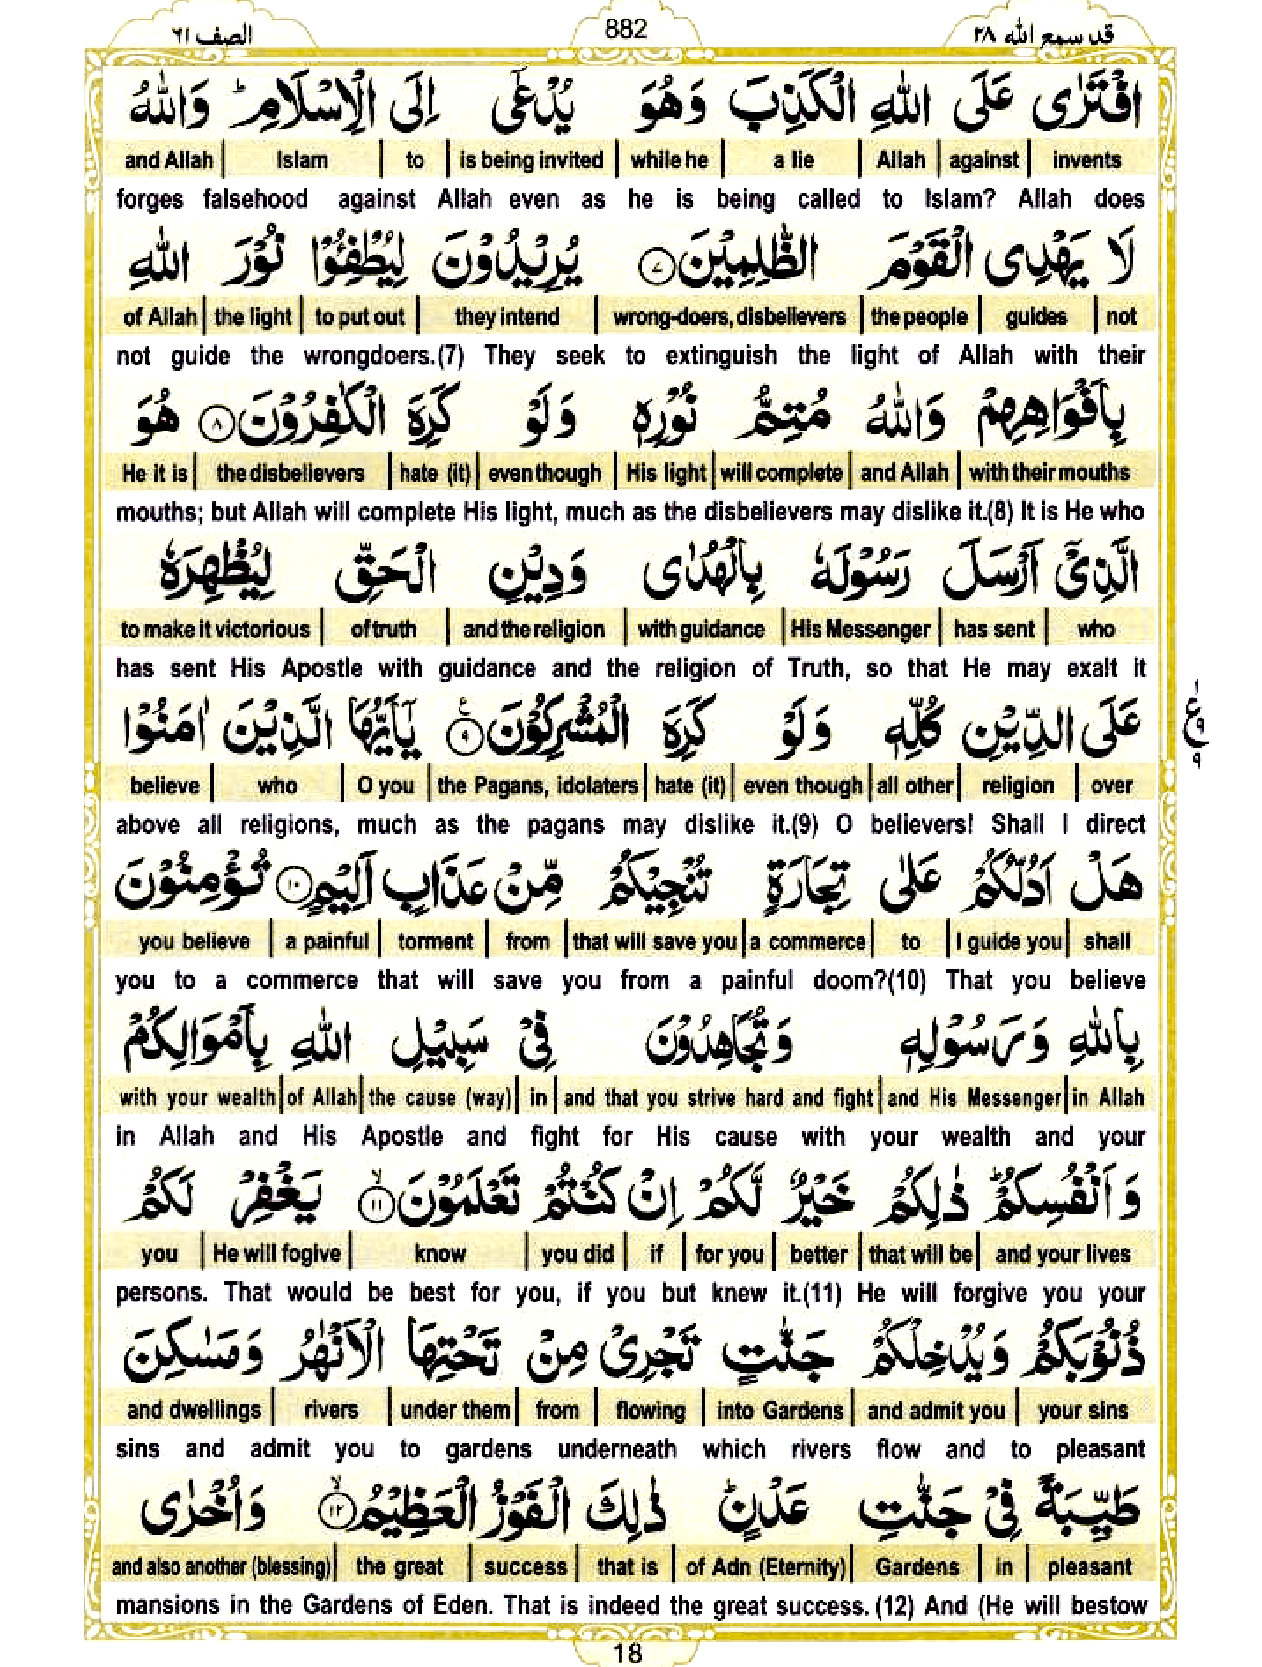 قد سمع الله ٢٨ 882 الصف ٦١
افْتَرٰى عَلَى اللهِ الْكَذِبَ وَهُوَ يُدْعٰٓى اِلَى الْاِسْلَامِ ؕ وَاللهُ
and Allah | Islam | to | is being invited | while he | a lie | Allah | against | invents
forges falsehood against Allah even as he is being called to Islam? Allah does
لَا يَهْدِى الْقَوْمَ الظّٰلِمِيْنَ ﴿٧﴾ يُرِيْدُوْنَ لِيُطْفِـُٔوْا نُوْرَ اللهِ
of Allah | the light | to put out | they intend | wrong-doers, disbelievers | the people | guides | not
not guide the wrongdoers.(7) They seek to extinguish the light of Allah with their
بِاَفْوَاهِهِمْ وَاللهُ مُتِمُّ نُوْرِهٖ وَلَوْ كَرِهَ الْكٰفِرُوْنَ ﴿٨﴾ هُوَ
He it is | the disbelievers | hate (it) | even though | His light | will complete | and Allah | with their mouths
mouths; but Allah will complete His light, much as the disbelievers may dislike it.(8) It is He who
الَّذِىْٓ اَرْسَلَ رَسُوْلَهٗ بِالْهُدٰى وَدِيْنِ الْحَقِّ لِيُظْهِرَهٗ
to make it victorious | of truth | and the religion | with guidance | His Messenger | has sent | who
has sent His Apostle with guidance and the religion of Truth, so that He may exalt it
عَلَى الدِّيْنِ كُلِّهٖ وَلَوْ كَرِهَ الْمُشْرِكُوْنَ ﴿٩﴾ يٰٓاَيُّهَا الَّذِيْنَ اٰمَنُوْا
١ ع ٩ ٩
believe | who | O you | the Pagans, idolaters | hate (it) | even though | all other | religion | over
above all religions, much as the pagans may dislike it.(9) O believers! Shall I direct
هَلْ اَدُلُّكُمْ عَلٰى تِجَارَةٍ تُنْجِيْكُمْ مِّنْ عَذَابٍ اَلِيْمٍ ﴿١٠﴾ تُؤْمِنُوْنَ
you believe | a painful | torment | from | that will save you | a commerce | to | I guide you | shall
you to a commerce that will save you from a painful doom?(10) That you believe
بِاللهِ وَرَسُوْلِهٖ وَتُجَاهِدُوْنَ فِىْ سَبِيْلِ اللهِ بِاَمْوَالِكُمْ
with your wealth | of Allah | the cause (way) | in | and that you strive hard and fight | and His Messenger | in Allah
in Allah and His Apostle and fight for His cause with your wealth and your
وَاَنْفُسِكُمْ ؕ ذٰلِكُمْ خَيْرٌ لَّكُمْ اِنْ كُنْتُمْ تَعْلَمُوْنَ ﴿١١﴾ يَغْفِرْ لَكُمْ
you | He will fogive | know | you did | if | for you | better | that will be | and your lives
persons. That would be best for you, if you but knew it.(11) He will forgive you your
ذُنُوْبَكُمْ وَيُدْخِلْكُمْ جَنّٰتٍ تَجْرِىْ مِنْ تَحْتِهَا الْاَنْهٰرُ وَمَسٰكِنَ
and dwellings | rivers | under them | from | flowing | into Gardens | and admit you | your sins
sins and admit you to gardens underneath which rivers flow and to pleasant
طَيِّبَةً فِىْ جَنّٰتِ عَدْنٍ ؕ ذٰلِكَ الْفَوْزُ الْعَظِيْمُ ﴿١٢﴾ وَاُخْرٰى
and also another (blessing) | the great | success | that is | of Adn (Eternity) | Gardens | in | pleasant
mansions in the Gardens of Eden. That is indeed the great success. (12) And (He will bestow
18